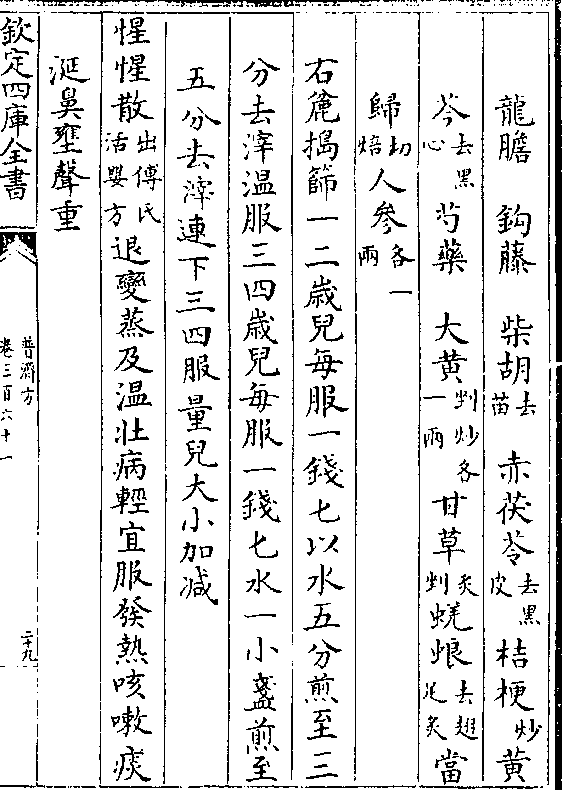 龍膽　鈎藤　柴胡去苗　赤茯苓去黑皮　桔梗炒　黄
芩去黑心　芍藥　大黄剉炒各一兩　甘草炙剉　蜣蜋去翅足炙　當
歸切焙　人參各一兩
右麄搗篩一二歲兒每服一錢匕以水五分煎至三
分去滓温服三四歲兒每服一錢匕水一小盞煎至
五分去滓連下三四服量兒大小加减
惺惺散出傅氏活嬰方　退變蒸及温壯病輕宜服發熱咳嗽痰
涎鼻壅聲重
欽定四庫全書
普濟方
卷三百六十一
二十九